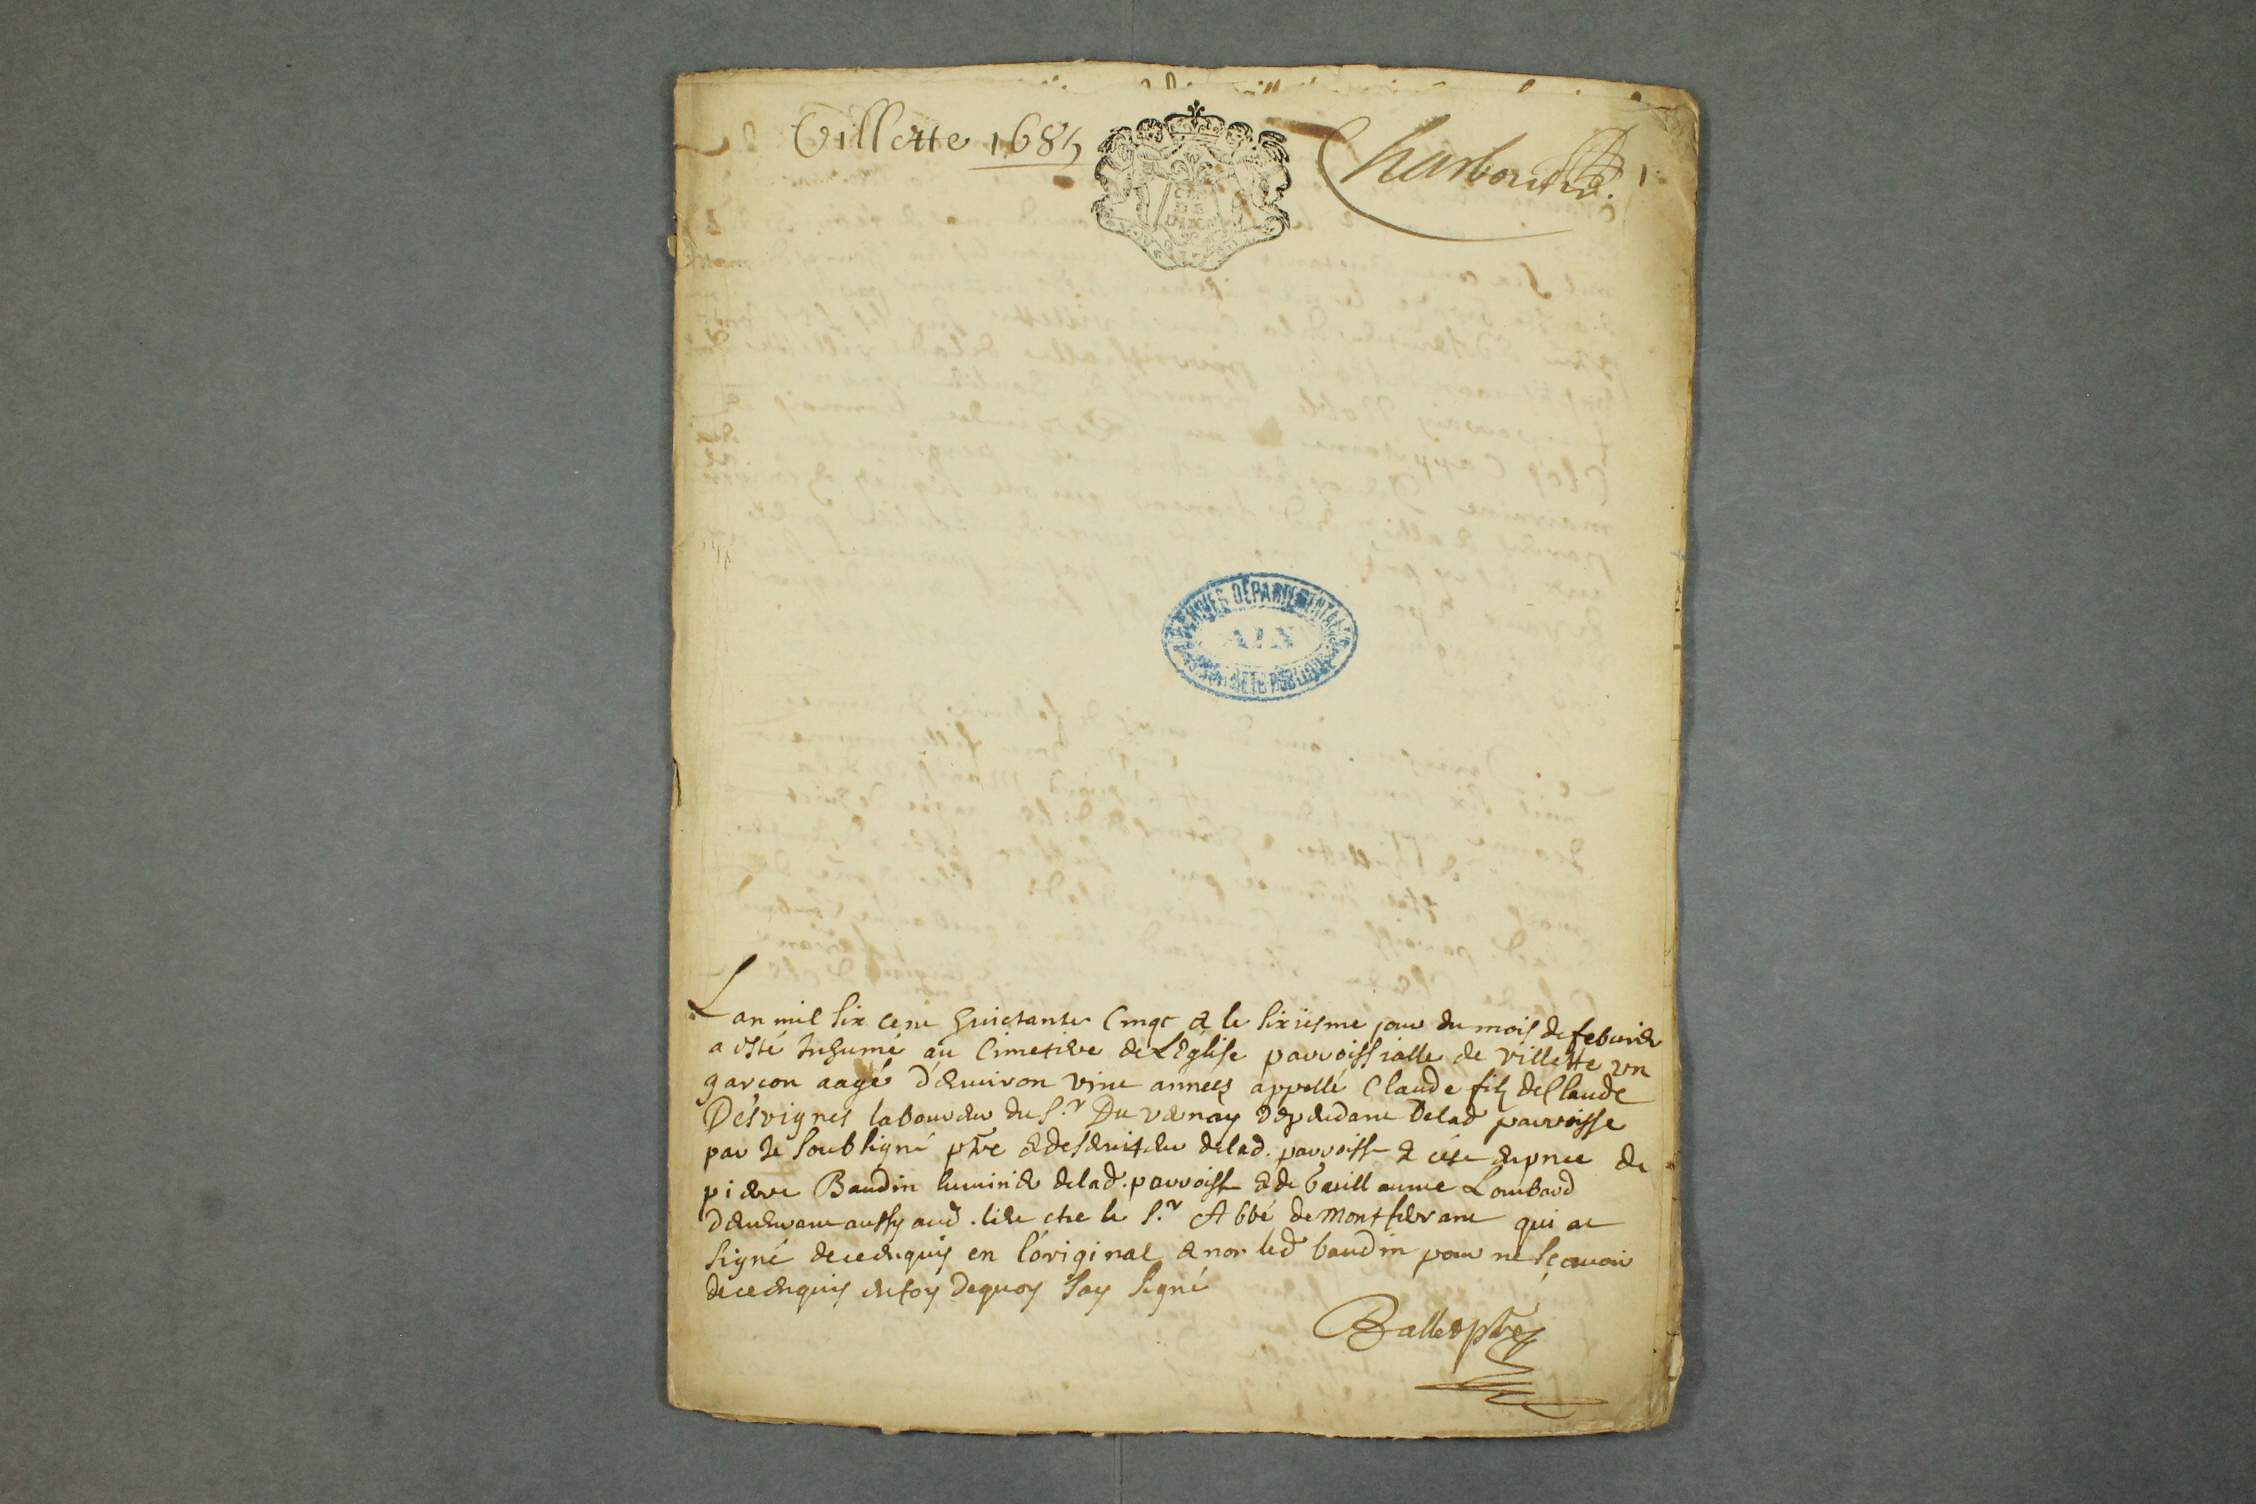 Villette 1685
1
ARCHIVES DÉPARTEMENTALES
AIN
PROPRIÉTÉ PUBLIQUE
Lan mil six cent huictante cinqc & le sixiesme jour du mois de febvrier
a esté inhumé au Cimetiere de LEglise parroissialle de villette vn
garçon aagé d'environ vint années appellé Claude filz de Claude
Desvignes laboureur du S.r Du vernay dependant delad parroisse
par Je soubsigné pbre & desserviteur delad. parroisse & c'est en pnce de
pierre Baudin luminier delad. parroisse & de Guillaume Lombard
demeurant aussy aud. lieu che le S.r Abbé de Montferrant qui a
signé de ce enquis en l'original & non led baudin pour ne sçavoir
de ce enquis en foy dequoy Jay signé
Ballet pbre